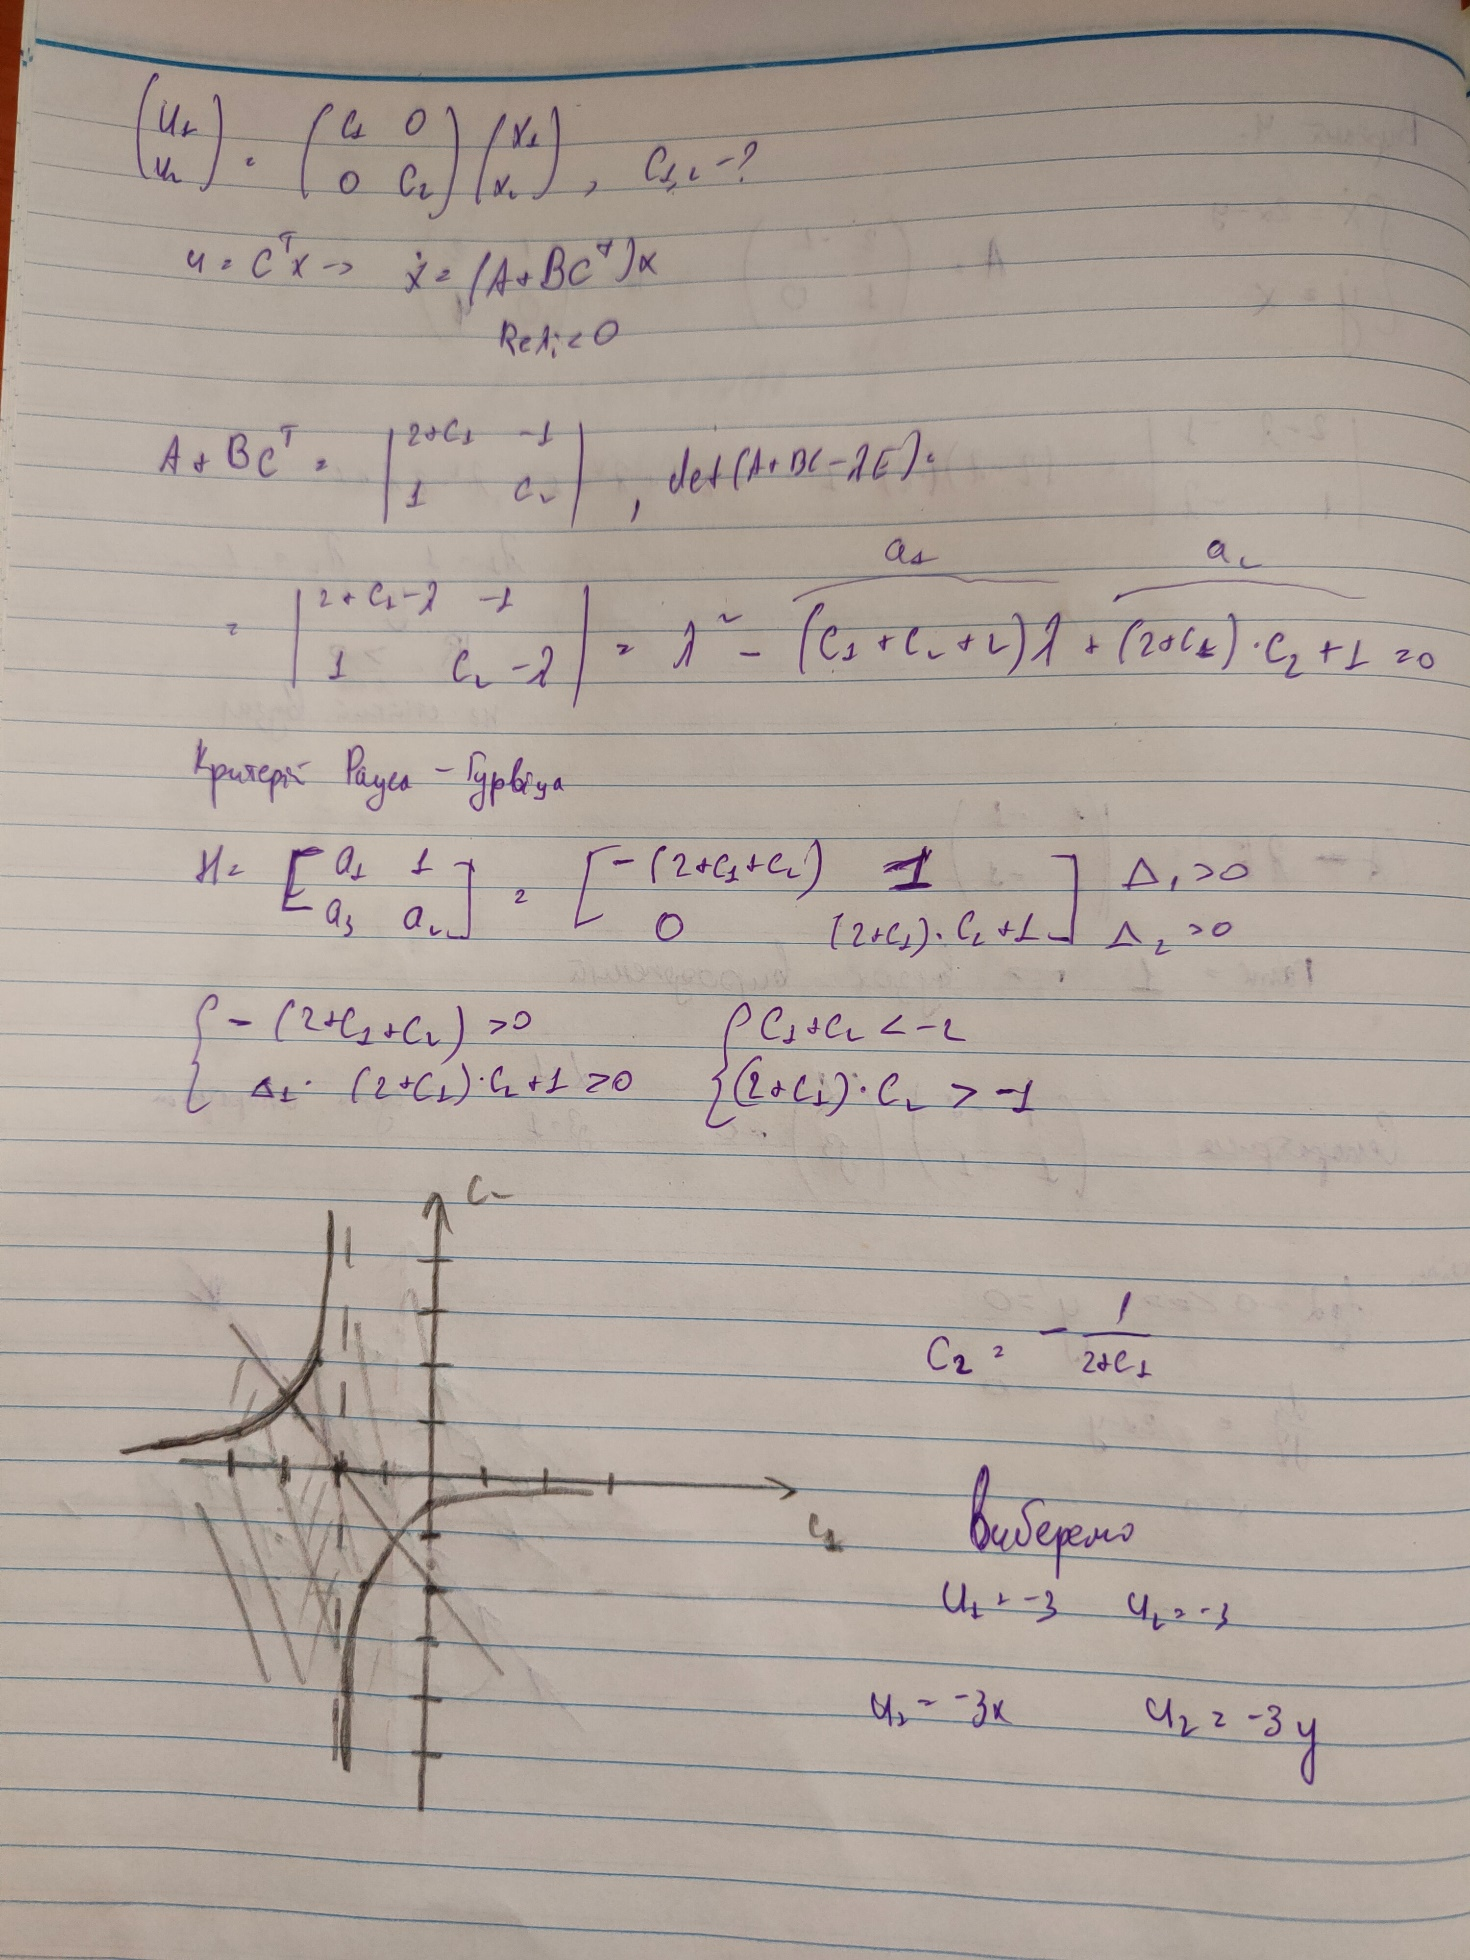 (u₁ u₂) = (c₁ 0 0 c₂)(x₁ x₂), c₁,₂ -?
u = cᵀx -> ẋ = (A + Bcᵀ)x
Reλᵢ < 0
A + Bcᵀ = |2+c₁ -1 1 c₂|, det(A+BC-λE) =
a₁ a₂
= |2+c₁-λ -1 1 c₂-λ| = λ² - (c₁+c₂+2)λ + (2+c₁)·c₂+1 = 0
Критерій Рауса - Гурвіца
H = [a₁ 1 a₃ a₂] = [-(2+c₁+c₂) 1 0 (2+c₁)·c₂+1] Δ₁>0 Δ₂>0
{-(2+c₁+c₂) > 0 {c₁+c₂ < -2
Δ₁· (2+c₁)·c₂+1 > 0 (2+c₁)·c₂ > -1
c₂
c₂ = - 1/(2+c₁)
c₁
Виберемо
u₁ = -3 u₂ = -3
u₁ = -3x u₂ = -3y